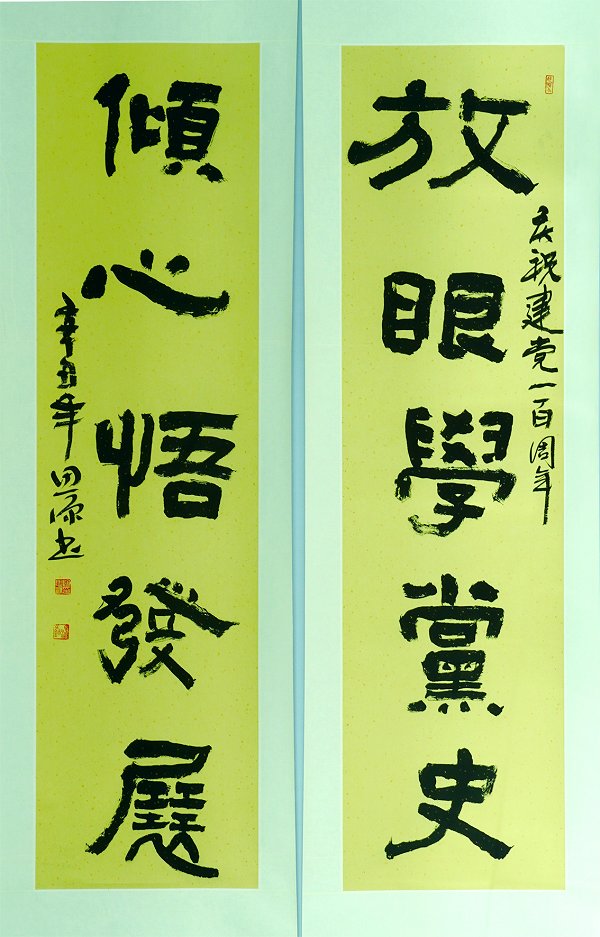 放眼學黨史
庆祝建党一百周年
傾心悟發展
辛丑年田源书